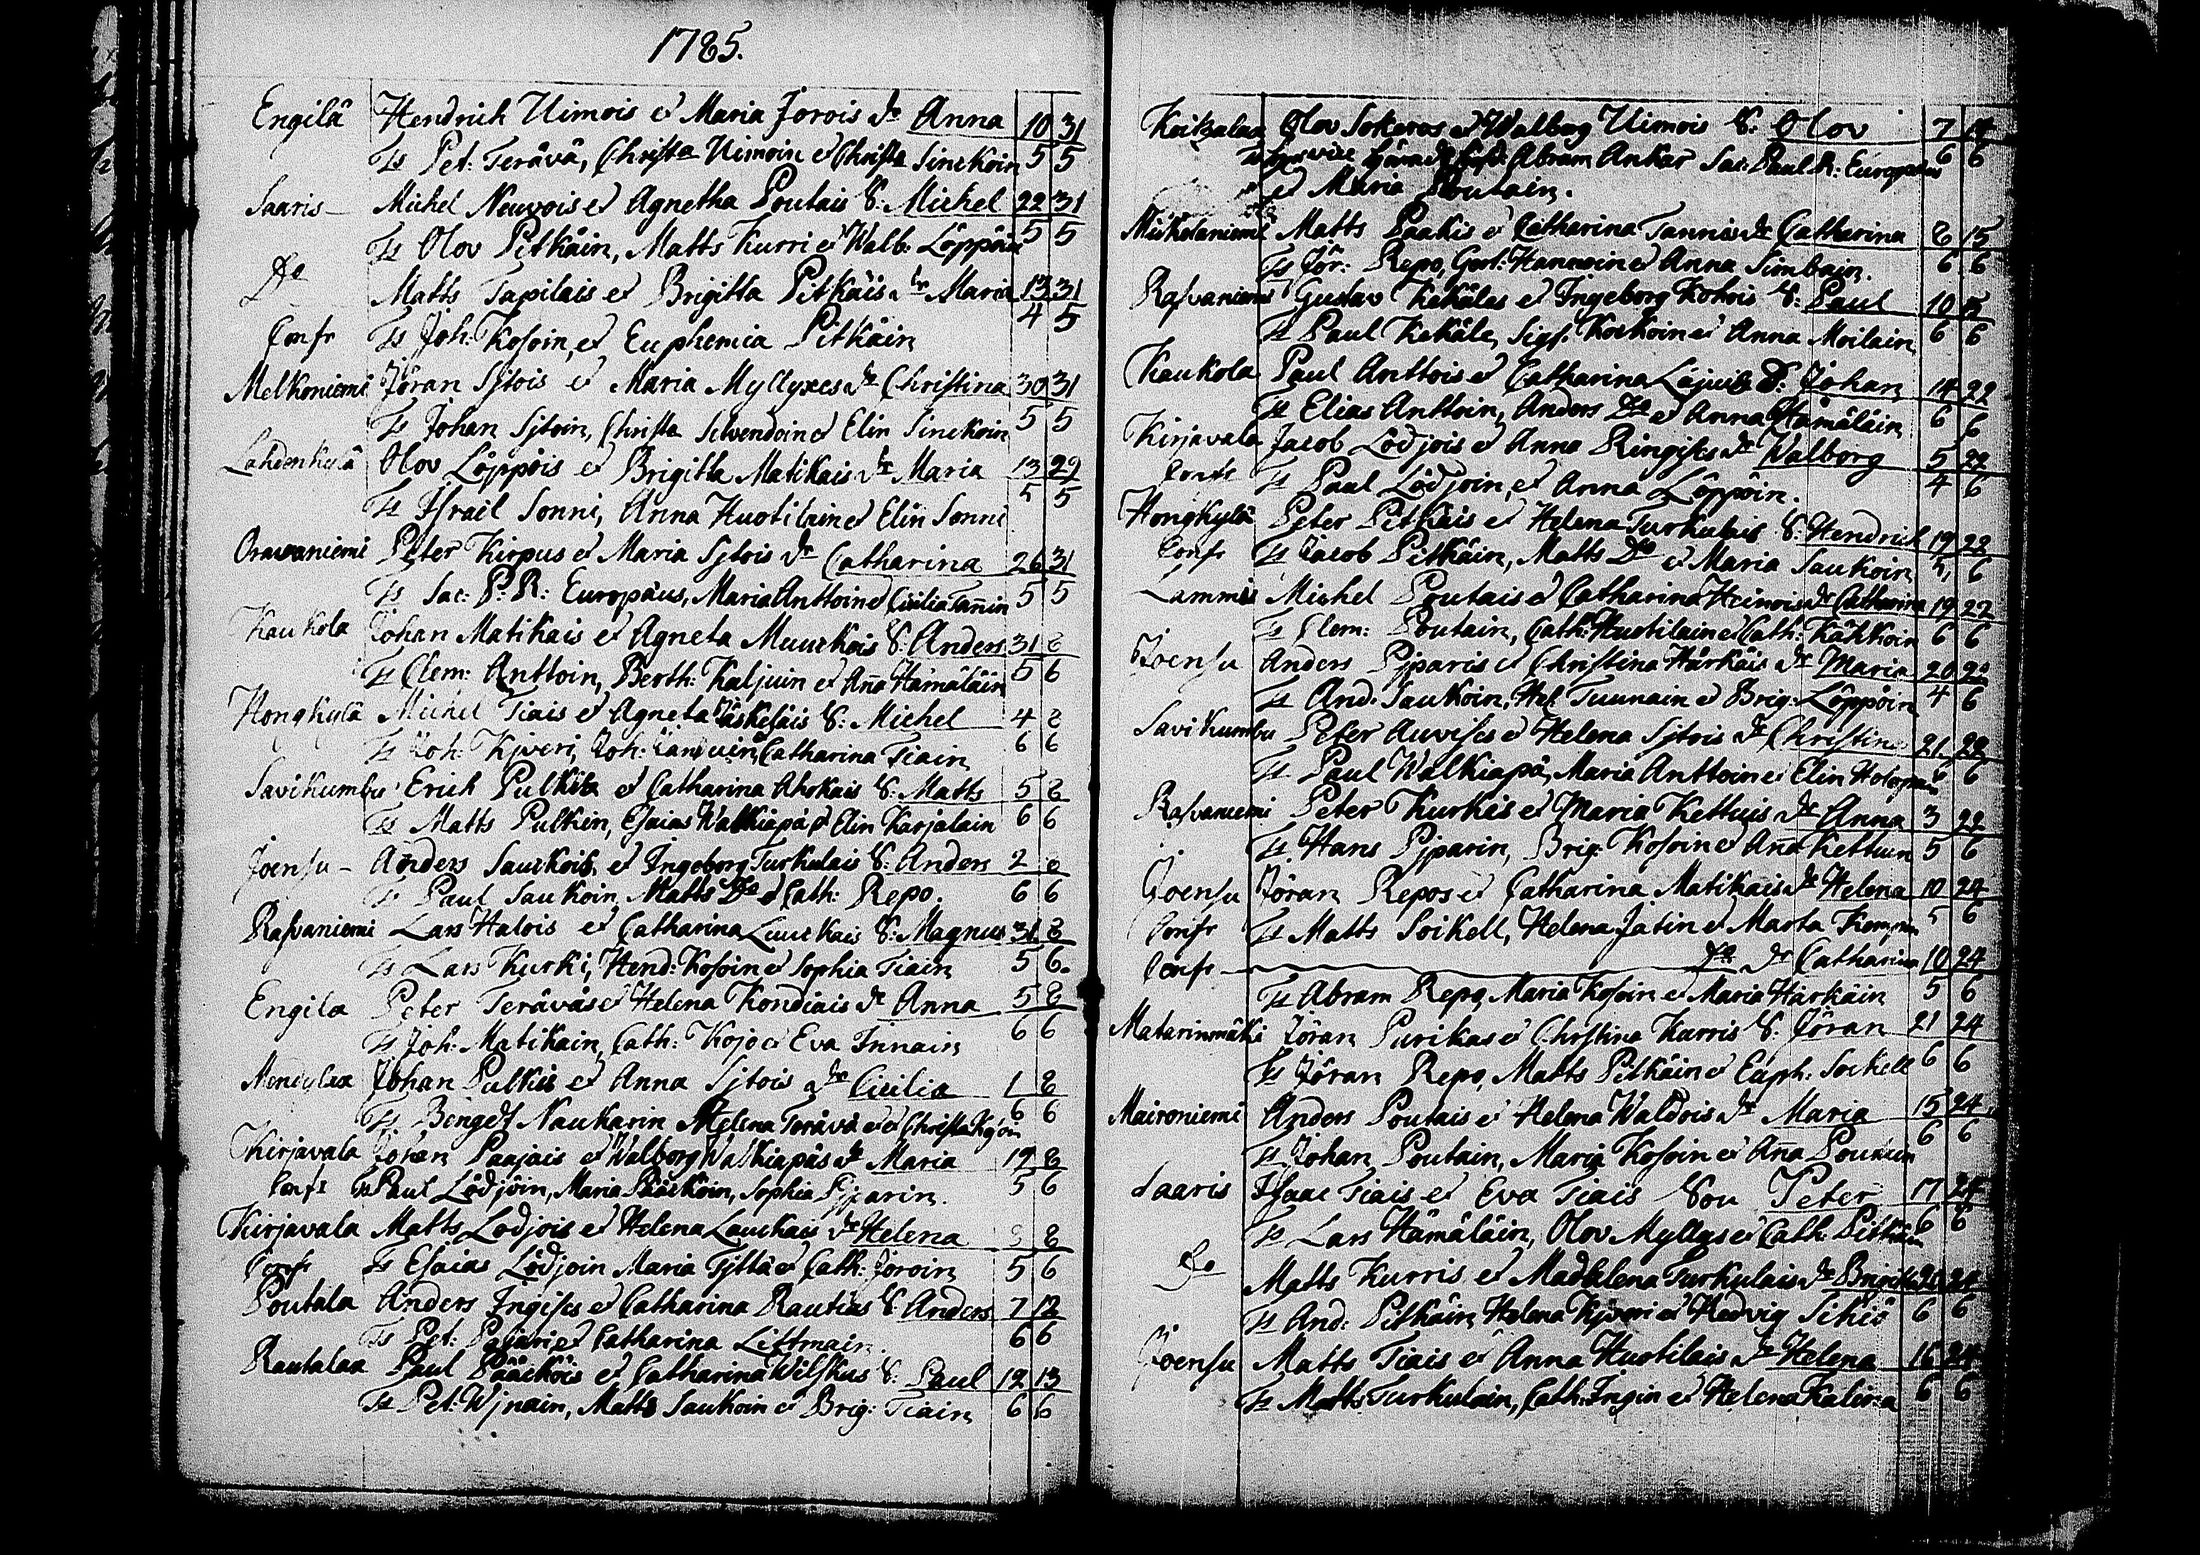 1785.
Engilä Hendrich Uimois et Maria Jorois dr Anna 10 31
Ts Pet: Terävä, Christa Uimoin et Christa Sinckoin 5 5
Saaris Michel Neuvois et Agnetha Poutais S: Michel 22 31
Ts Olov Pitkäin, Matts Kurri et Walb: Löppöin 5 5
Do Matts Tapilais et Brigitta Pitkäis dr Maria 13 31
Confr Ts Joh: Kosoin, et Euphemia Pitkäin 4 5
Melkoniemi Jöran Sjtois et Maria Myllyxes dr Christina 30 31
Ts Johan Sjtoin, Christa Silvendoin et Elin Sinckoin 5 5
Lahdenkylä Olov Löppöis et Brigitta Matikais dr Maria 13 29
Ts Israil Sonni, Anna Huotilain et Elin Sonni 5 5
Oravaniemi Peter Kirpus et Maria Sjtois dr Catharina 26 31
Ts Sac: P: R: Europæus, Maria Anttoin et Cicilia Tannin 5 5
Kaukola Johan Matikais et Agneta Muuckois S: Anders 31 8
Ts Clem: Anttoin, Berth: Kaljuin et Anna Hämäläin 5 6
Hongkylä Michel Tiais et Agneta S: Michel 4 8
Ts Joh: Kjveri, Joh: Catharina Tiain 6 6
Savikumbu Erich Pulkis et Catharina Ahokais S: Matts 5 8
Ts Matts Pulkin, Esaias Walkiapä et Elin Karjalain 6 6
Joensu Anders Sauckois et Ingeborg Turkulais S: Anders 2 8
Ts Paul Saukoin, Matts Do et Cath: Repo. 6 6
Rasvaniemi Lars Halois et Catharina Luuckais S: Magnus 31 8
Ts Lars Kurki, Hend: Kosoin et Sophia Tiain 5 6
Engilæ Peter Teräväs et Helena Kondiais dr Anna 5 8
Ts Joh: Matikain, Cath: Kojo et Eva Innain 6 6
Johan Pulkis et Anna Sjtois dr Cicilia 1 8
Ts Bengdt Naukarin Helena Terävä et Christa 6 6
Kirjavala Johan Paajais et Walborg Walkiapäs dr Maria 19 8
Confr Ts Paul Lodjoin, Maria Pääsköin, Sophia Pjparin. 5 6
Kirjavala Matts Lodjois et Helena Lauckais dr Helena 8
Confr Ts Esaias Lodjoin Maria Tjttä et Cath: Joroin 5 6
Poutala Anders Ingises et Catharina Rautias S: Anders 7 12
Ts Pet: Pajari et Catharina Littmain. 6 6
Rautalaa Paul Pääcköis et Catharina Wilskus S: Paul 12 13
Ts Pet: Wjnain, Matts Saukoin et Brig: Tiain 6 6
Koitzalaa Olov Sokeros et Walborg Uimois S: Olov 7 14
Abram Ankar Sac: Paul R: Europæus 6 6
et Maria Poutain.
Mickolaniemi Matts Paakis et Catharina Tannis dr Catharina 8 15
Ts Jör: Repo, Gert: Hannoin et Anna Simbain. 6 6
Rasvaniemi Gustav Kekäles et Ingeborg Kohois S: Paul 10 15
Ts Paul Kekäle, Sigf: Koskoin et Anna Moilain 6 6
Kaukola Paul Anttois et Catharina S: Johan 14 22
Ts Elias Anttoin, Anders Do et Anna Hämäläin 6 6
Kirjavala Jacob Lodjois et Anna Ringises dr Walborg 5 22
Confr Ts Paul Lodjoin, et Anna Löppöin. 4 6
Hongkylä Peter Pitkäis et Helena Turkulais S: Hendrich 19 22
Confr Ts Jacob Pitkäin, Matts Do et Maria Saukoin 5 6
Lammis Michel Poutais et Catharina Heinois dr Catharina 19 22
Ts Clem: Poutain, Cath: Huotilain et Cath: Kähkoin 6 6
Joensu Anders Pjparis et Christina Härkäis dr Maria 20 22
Ts And: Saukoin, Hel: Tuunain et Brig: Löppöin 4 6
Savikumbu Peter Auvises et Helena Sjtois dr Christina 21 22
Ts Paul Walkiapä, Maria Anttoin et Elin 6 6
Rasvaniemi Peter Kurkis et Maria Kettuis dr Anna 3 22
Ts Hans Pjparin, Brig: Kosoin et Anna Kettuin 5 6
Joensu Jöran Repos et Catharina Matikais dr Helena 10 24
Confr Ts Matts Soikell, Helena Jatin et Marta 5 6
Confr Do dr Catharina 10 24
Ts Abram Repo, Maria Kosoin et Maria Härkäin 5 6
Matarinmäki Jöran Purikas et Christina Kurris S: Jöran 21 24
Ts Jöran Repo, Matts Pitkäin et Euph: Soikell 6 6
Maironiemi Anders Poutais et Helena Waldois dr Maria 15 24
Ts Johan Poutain, Maria Kosoin et Anna Poutain 6 6
Saaris Isaac Tiais et Eva Tiais Son Peter 17 24
Ts Lars Hämäläin, Olov Myllys et Cath: Pitkäin 6 6
Do Matts Kurris et Madalena Turkulais dr Brigitta 20 24
Ts And: Pitkäin, Helena Kjveri et Hedvig Sikiö 6 6
Joensu Matts Tiais et Anna Huotilais dr Helena 16 24
Ts Matts Turkulain, Cath: Ingin et Helena Kalina 6 6